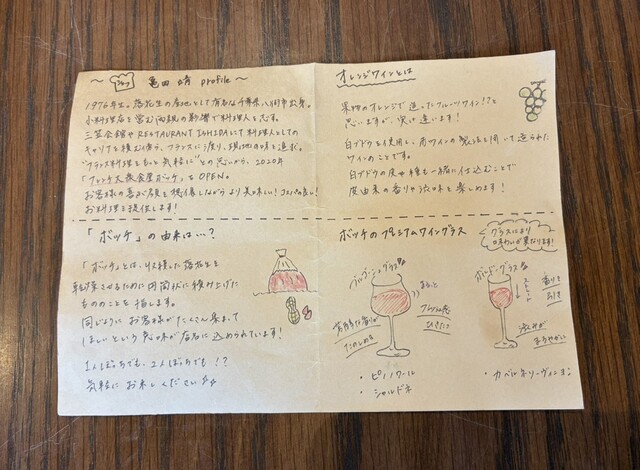 ～ シェフ 亀田 靖 profile ～
1976年生。落花生の産地として有名な千葉県八街市出身。
小料理店を営む両親の影響で料理人を志す。
三笠会館やRESTAURANT ISHIDAにて料理人としての
キャリアを積む傍ら、フランスに渡り、現地の味を追求。
"フランス料理をもっと気軽に"との思いから、2020年
「フレンチ大衆食堂ボッチ」をOPEN。
お客様の喜ぶ顔を想像しながらより美味しい!コスパの良い!
お料理を提供します!
オレンジワインとは
果物のオレンジで造ったフルーツワイン!?と
思いますが、実は違います!
白ブドウを使用し、赤ワインの製法を用いて造られた
ワインのことです。
白ブドウの皮や種も一緒に仕込むことで
皮由来の香りや渋味を楽しめます!
「ボッチ」の由来はい?
「ボッチ」とは、収穫した落花生を
乾燥させるために円筒状に積み上げた
もののことを指します。
同じようにお客様がたくさん集まって
ほしいという意味が店名に込められています!
1人ぼっちでも、2人ぼっちでも!?
気軽にお来しください
ボッチのプレミアムワイングラス
グラスにより
味わいが異なります!
ブルゴーニュグラス
芳醇な香りが
たのしめる
・ピノノワール
・シャルドネ
ボルドーグラス
香りを
渋味が
まろやかに
・カベルネソーヴィニヨン